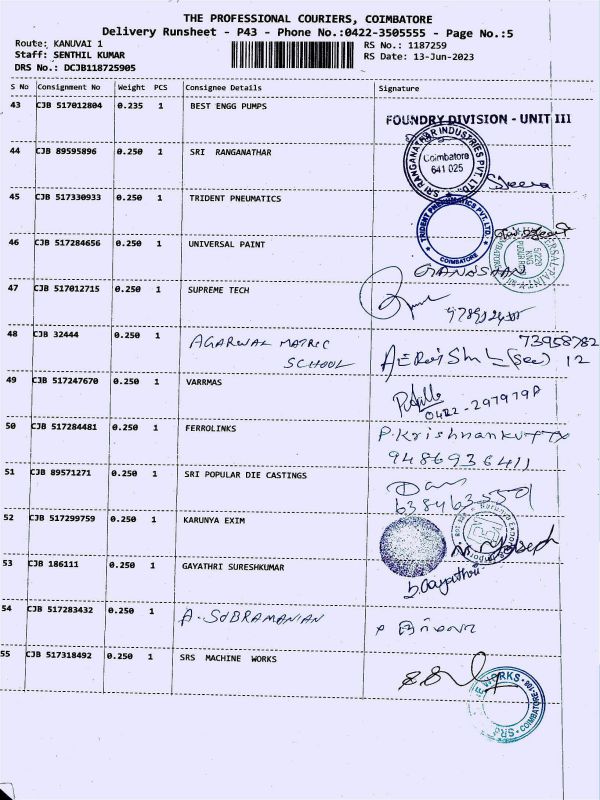 THE PROFESSIONAL COURIERS, COIMBATORE
Delivery Runsheet - P43 - Phone No.:0422-3505555 - Page No.:5
Route: KANUVAI 1
RS No.: 1187259
Staff: SENTHIL KUMAR
RS Date: 13-Jun-2023
DRS No.: DCJB118725905
S No Consignment No Weight PCS Consignee Details Signature
43 CJB 517012804 0.235 1 BEST ENGG PUMPS
FOUNDRY DIVISION - UNIT III
44 CJB 89595896 0.250 1 SRI RANGANATHAR
SRI RANGANATHAR INDUSTRIES PVT. LTD.
Coimbatore
641 025
45 CJB 517330933 0.250 1 TRIDENT PNEUMATICS
TRIDENT PNEUMATICS PVT. LTD.
COIMBATORE
46 CJB 517284656 0.250 1 UNIVERSAL PAINT
47 CJB 517012715 0.250 1 SUPREME TECH
48 CJB 32444 0.250 1 AGARWAL MATRIC
SCHOOL
73958782
12
49 CJB 517247670 0.250 1 VARRMAS
0422-297979
50 CJB 517284481 0.250 1 FERROLINKS
P.Krishnankutty
9486936411
51 CJB 89571271 0.250 1 SRI POPULAR DIE CASTINGS
6384635501
52 CJB 517299759 0.250 1 KARUNYA EXIM
53 CJB 186111 0.250 1 GAYATHRI SURESHKUMAR
b.Gayathri
54 CJB 517283432 0.250 1 A. SUBRAMANIAN
55 CJB 517318492 0.250 1 SRS MACHINE WORKS